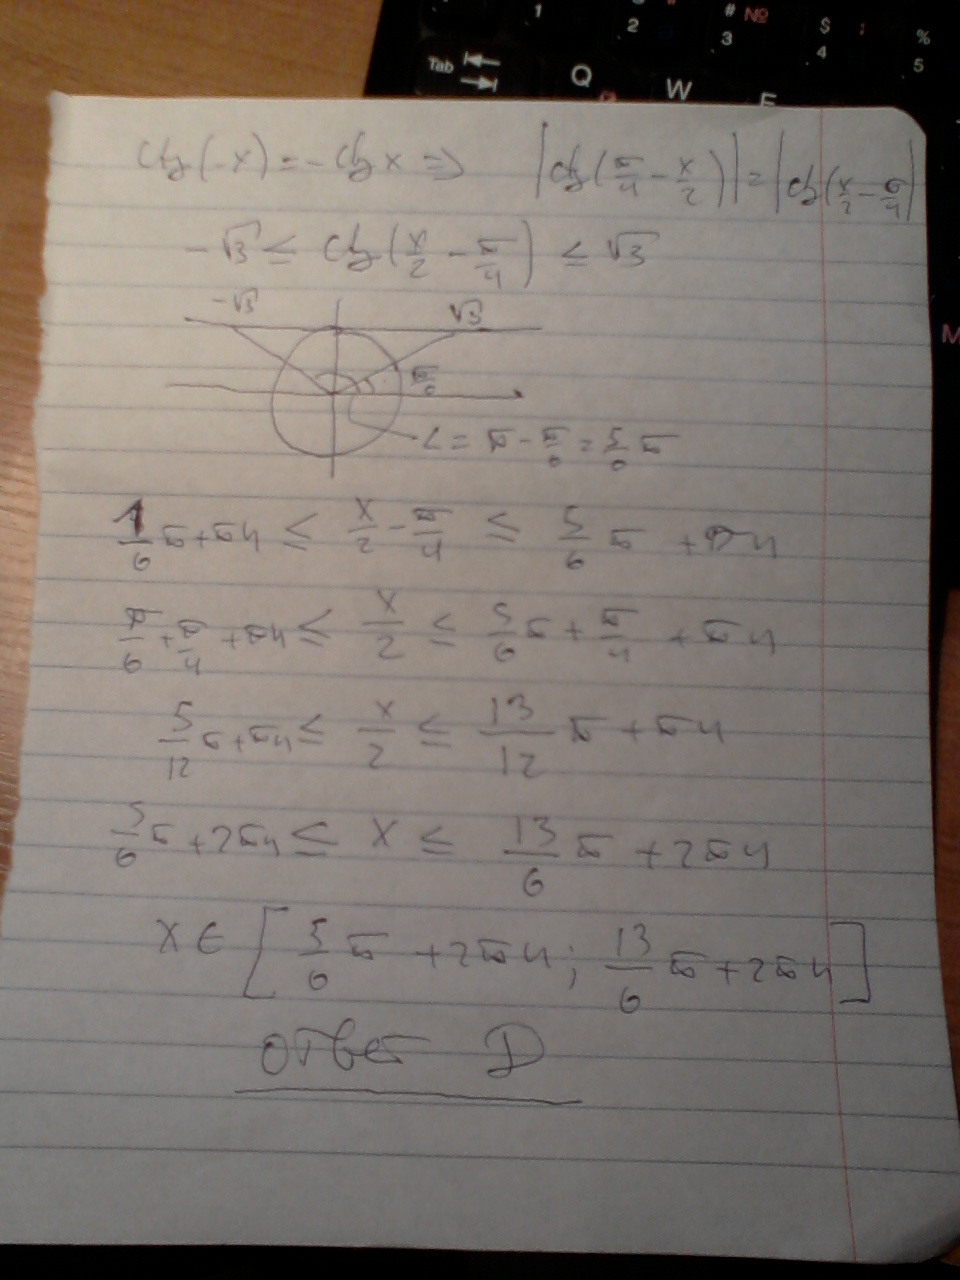 Tab Q W E
1 2 # № 3 $ ; 4 % 5
ctg(-x) = -ctg x ⇒ |ctg(π/4 - x/2)| = |ctg(x/2 - π/4)|
-√3 ≤ ctg(x/2 - π/4) ≤ √3
-√3 √3
π/6
∠ = π - π/6 = 5/6 π
1/6 π + πn ≤ x/2 - π/4 ≤ 5/6 π + πn
π/6 + π/4 + πn ≤ x/2 ≤ 5/6 π + π/4 + πn
5/12 π + πn ≤ x/2 ≤ 13/12 π + πn
5/6 π + 2πn ≤ x ≤ 13/6 π + 2πn
x ∈ [5/6 π + 2πn; 13/6 π + 2πn]
ответ D